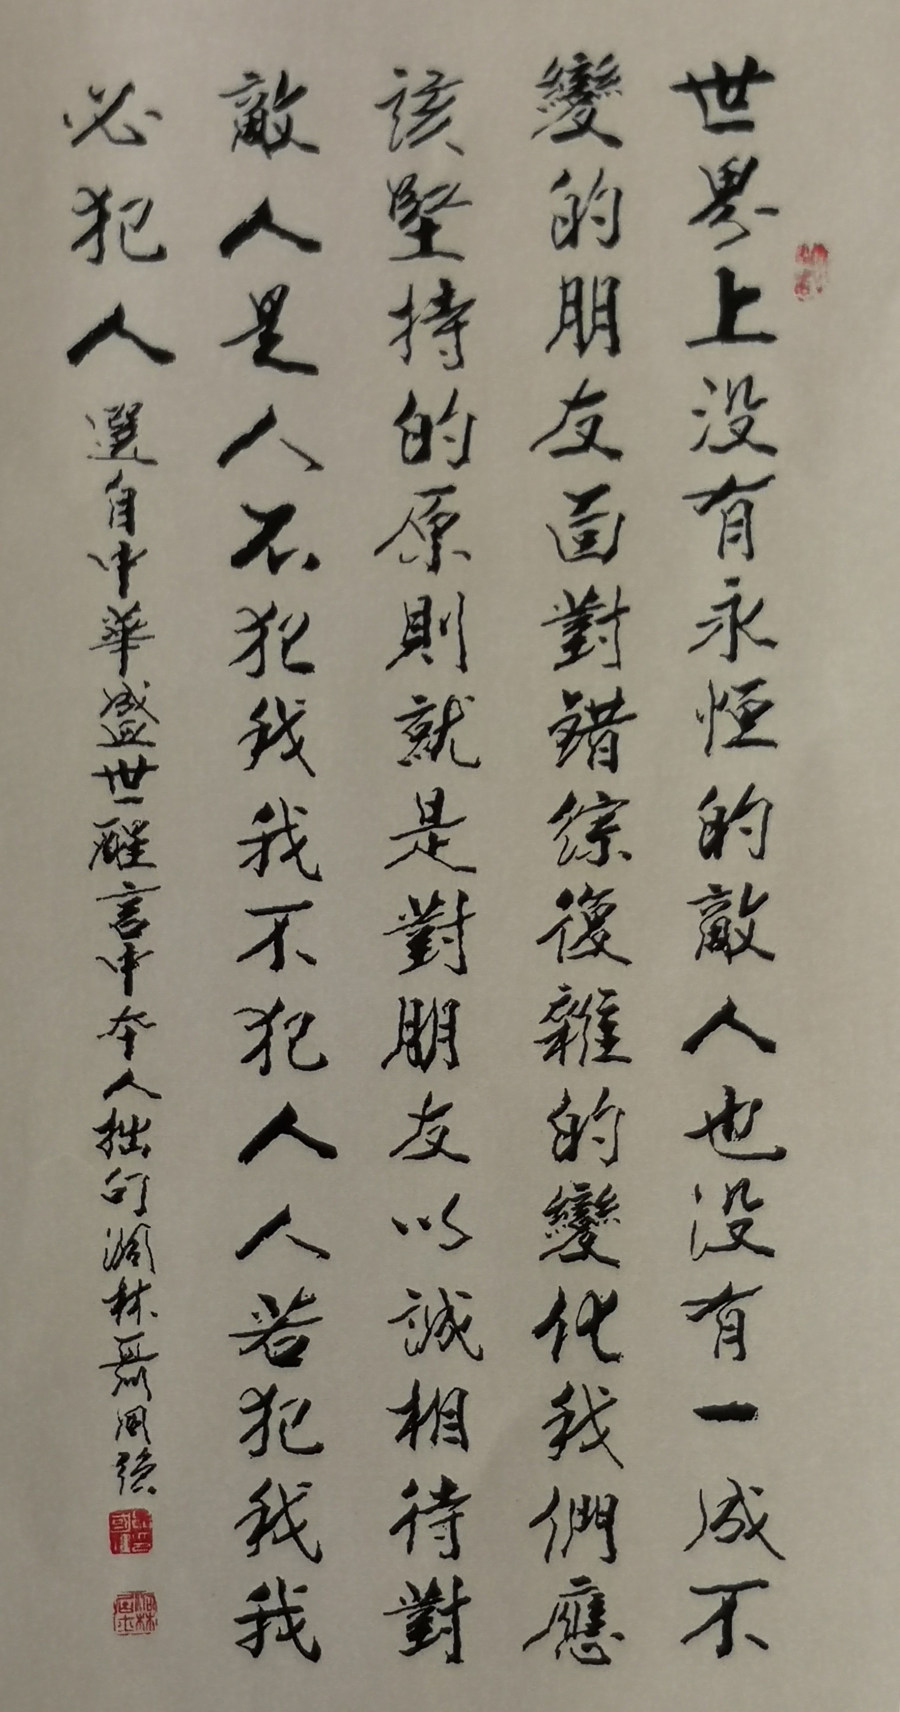 世界上没有永恒的敵人也没有一成不
變的朋友面對錯綜復雜的變化我們應
該堅持的原則就是對朋友以誠相待對
敵人是人不犯我我不犯人人若犯我我
必犯人
選自中華盛世醒言中本人拙句 林聶国强